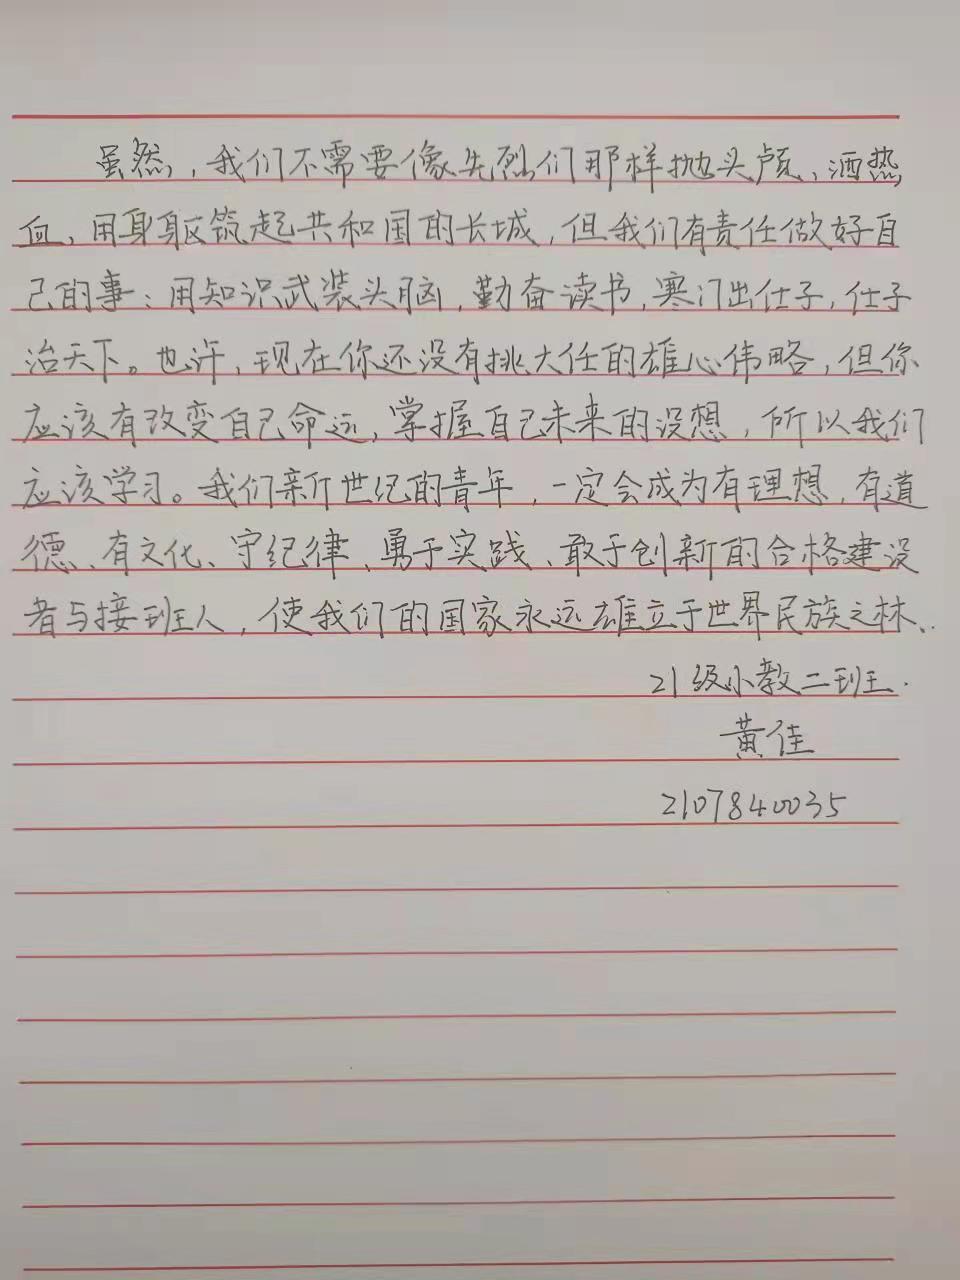 虽然，我们不需要像先烈们那样抛头颅、洒热
血，用身躯筑起共和国的长城，但我们有责任做好自
己的事：用知识武装头脑，勤奋读书，寒门出仕子，仕子
治天下。也许，现在你还没有挑大任的雄心伟略，但你
应该有改变自己命运，掌握自己未来的设想，所以我们
应该学习。我们新世纪的青年，一定会成为有理想，有道
德、有文化、守纪律、勇于实践、敢于创新的合格建设
者与接班人，使我们的国家永远雄立于世界民族之林..
21级小教二班.
黄佳
2107840035